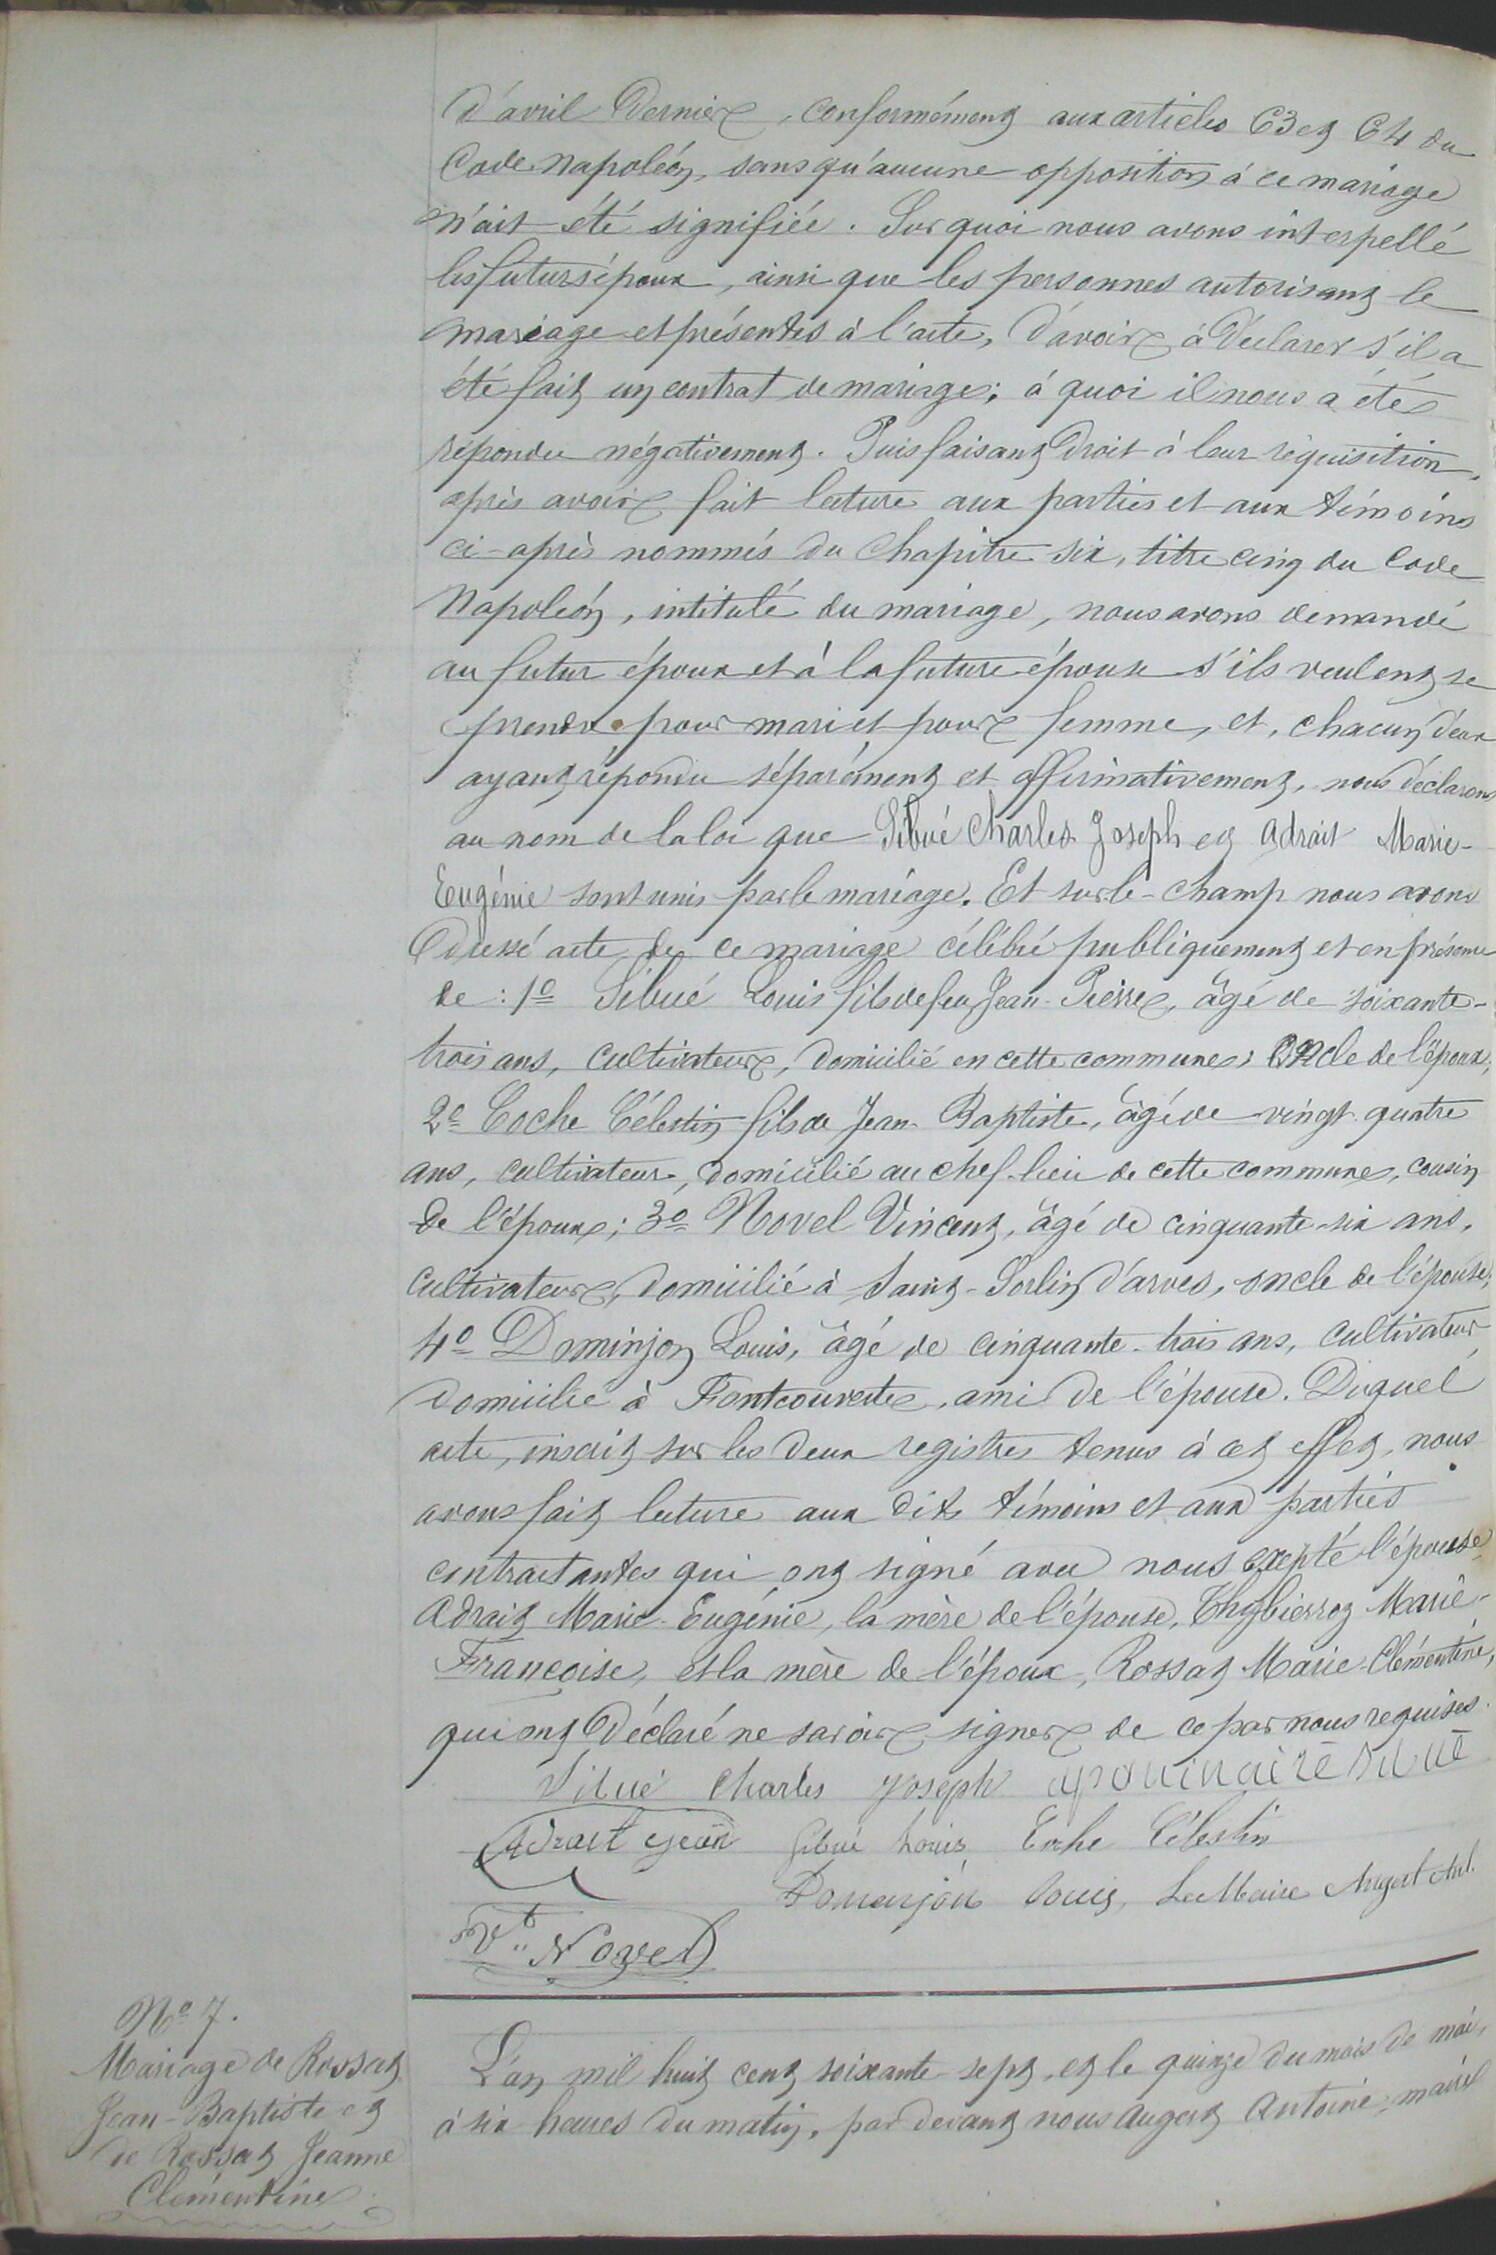 d'avril dernier, conformément aux articles 63 et 64 du
Code Napoléon, sans qu'aucune opposition à ce mariage
n'ait été signifiée. Sur quoi nous avons interpellé
les futurs époux, ainsi que les personnes autorisant le
mariage et présentes à l'acte, d'avoir à déclarer s'il a
été fait un contrat de mariage; à quoi il nous a été
répondu négativement. Puis faisant droit à leur réquisition,
après avoir fait lecture aux parties et aux témoins
ci-après nommés du chapitre six, titre cinq du Code
Napoléon, intitulé du mariage, nous avons demandé
au futur époux et à la future épouse s'ils veulent se
prendre pour mari et pour femme, et, chacun d'eux
ayant répondu séparément et affirmativement, nous déclarons
au nom de la loi que Sibué Charles Joseph et Adrait Marie-
Eugénie sont unis par le mariage. Et sur le-champ nous avons
dressé acte de ce mariage célébré publiquement et en présence
de : 1º Sibué Louis fils de feu Jean-Pierre, âgé de soixante-
trois ans, cultivateur, domicilié en cette commune, oncle de l'époux;
2º Coche Célestin fils de Jean-Baptiste, âgé de vingt quatre
ans, cultivateur, domicilié au chef-lieu de cette commune, cousin
de l'époux; 3º Novel Vincent, âgé de cinquante-six ans,
cultivateur, domicilié à Saint-Sorlin d'arves, oncle de l'épouse;
4º Dominjon Louis, âgé de cinquante-trois ans, cultivateur,
domicilié à Fontcouverte, ami de l'épouse. Duquel
acte, inscrit sur les deux registres tenus à cet effet, nous
avons fait lecture aux dits témoins et aux parties
contractantes qui ont signé avec nous excepté l'épouse
Adrait Marie-Eugénie, la mère de l'épouse, Marie-
Françoise, et la mère de l'époux, Rossat Marie-Clémentine,
qui ont déclaré ne savoir signer de ce par nous requises.
Sibué Charles Joseph apolinaire Sibué
Adrait Jean Sibué Louis Coche Célestin
Domenjon Louis, Le Maire Augert Ant.
Vt Novel
Nº 7.
Mariage de Rossat
Jean-Baptiste et
de Rossat Jeanne
Clémentine
L'an mil huit cent soixante-sept, et le quinze du mois de mai,
à six heures du matin, par devant nous Augert Antoine, maire